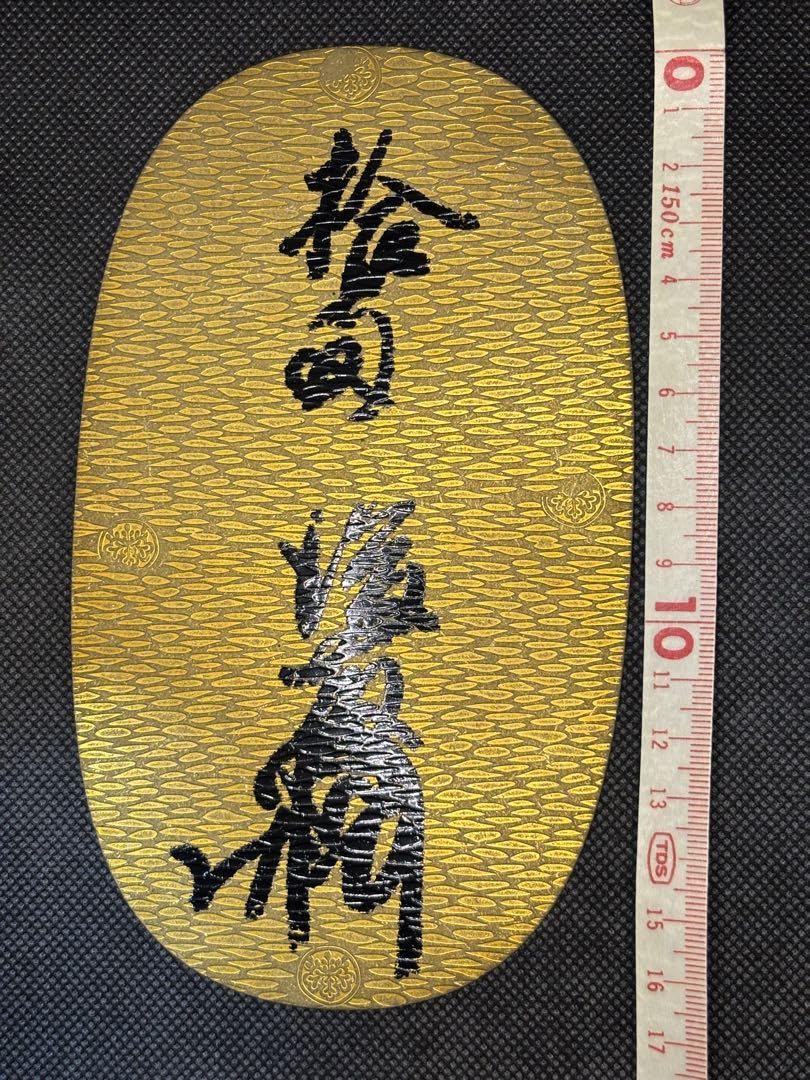 拾両
後藤
0
1
2
150cm
4
5
6
7
8
9
10
11
12
13
TDS
15
16
17